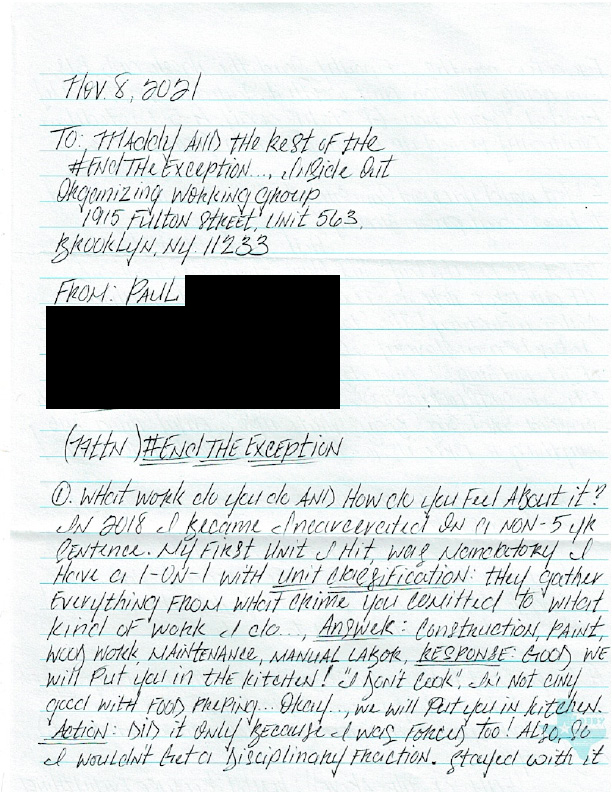 Nov. 8, 2021
TO: MAddy AND the Rest of the
#EndTheException..., Inside Out
Organizing Working group
1915 Fulton Street, Unit 563.
Brooklyn, NY 11233
FROM: PAUL
(Attn) #End THE EXCEPTION
①. What work do you do AND How do you Feel About it?
In 2018 I Became Incarcerated On a NON-5 yr
Sentence. My First Unit I Hit was Mandatory I
Have a 1-ON-1 with unit classification: they gather
Everything FROM what crime you comitted to what
kind of work I do..., Answer: Construction, PAINT,
wood work, MAINTENANCE, MANUAL LABOR, RESPONSE: GOOD WE
will Put you in THE KitcHEN! "I Don't Cook", I'm Not any
good with FOOD PREPing... Okay..., we will Put you in kitchen.
Action: DiD it Only BECAUSE I was FORCED too! Also, So
I wouldn't Get a Disciplinary Fraction. Stayed with it